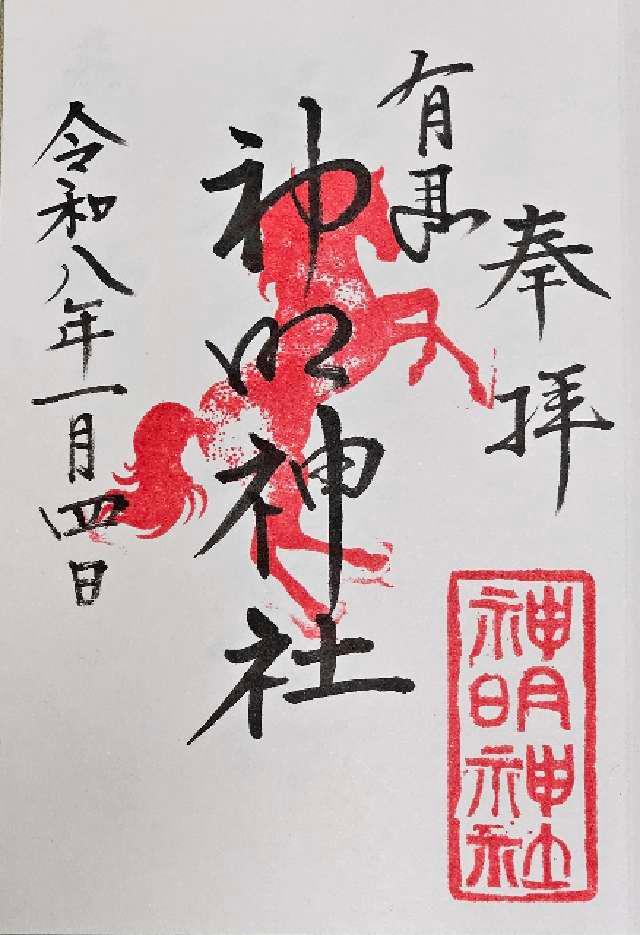 奉拝
有馬
神明神社
令和八年一月四日
神明神社